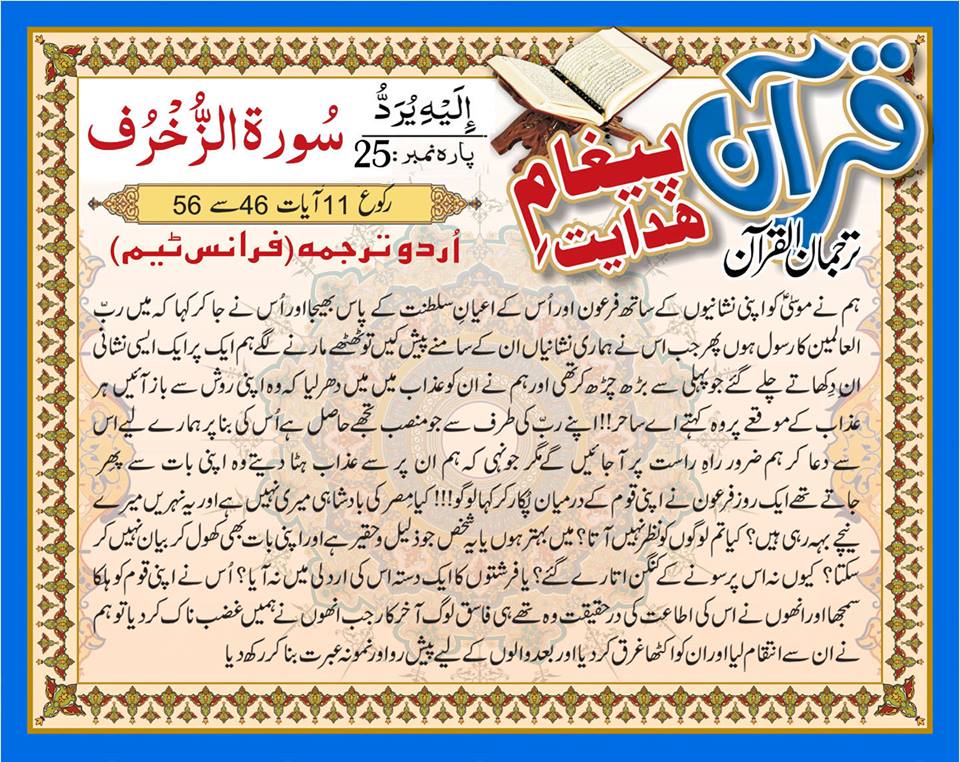 قرآن
پیغامِ
ھدایت
ترجمان القرآن
إِلَيْهِ يُرَدُّ
پارہ نمبر:25
سُورة الزُّخْرُف
رکوع 11 آیات 46 سے 56
اُردو ترجمہ (فرانس ٹیم)
ہم نے موسیٰؑ کو اپنی نشانیوں کے ساتھ فرعون اور اُس کے اعیانِ سلطنت کے پاس بھیجا اور اُس نے جا کر کہا کہ میں ربّ
العالمین کا رسول ہوں پھر جب اس نے ہماری نشانیاں ان کے سامنے پیش کیں تو ٹھٹھے مارنے لگے ہم ایک پر ایک ایسی نشانی
ان دِکھاتے چلے گئے جو پہلی سے بڑھ چڑھ کر تھی اور ہم نے ان کو عذاب میں میں دھر لیا کہ وہ اپنی روش سے باز آئیں ہر
عذاب کے موقعے پر وہ کہتے اے ساحر!! اپنے ربّ کی طرف سے جو منصب تجھے حاصل ہے اُس کی بنا پر ہمارے لیے اس
سے دعا کر ہم ضرور راہِ راست پر آجائیں گے مگر جونہی کہ ہم ان پر سے عذاب ہٹا دیتے وہ اپنی بات سے پھر
جاتے تھے ایک روز فرعون نے اپنی قوم کے درمیان پُکار کر کہا لوگو!!! کیا مصر کی بادشاہی میری نہیں ہے اور یہ نہریں میرے
نیچے بہہ رہی ہیں؟ کیا تم لوگوں کو نظر نہیں آتا؟ میں بہتر ہوں یا یہ شخص جو ذلیل و حقیر ہے اور اپنی بات بھی کھول کر بیان نہیں کر
سکتا؟ کیوں نہ اس پر سونے کے کنگن اتارے گئے؟ یا فرشتوں کا ایک دستہ اس کی اردلی میں نہ آیا؟ اُس نے اپنی قوم کو ہلکا
سمجھا اور انھوں نے اس کی اطاعت کی درحقیقت وہ تھے ہی فاسق لوگ آخر کار جب انھوں نے ہمیں غضب ناک کر دیا تو ہم
نے ان سے انتقام لیا اور ان کو اکٹھا غرق کر دیا اور بعد والوں کے لیے پیش رو اور نمونہ عبرت بنا کر رکھ دیا